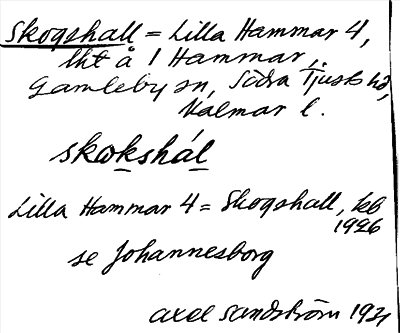 Skogshall = Lilla Hammar 4,
lht å 1 Hammar,
Gamleby sn, Södra Tjusts hd,
Kalmar l.
skωkshál
Lilla Hammar 4 = Skogshall, kb
1926
se Johannesborg
Axel Sandström 1931